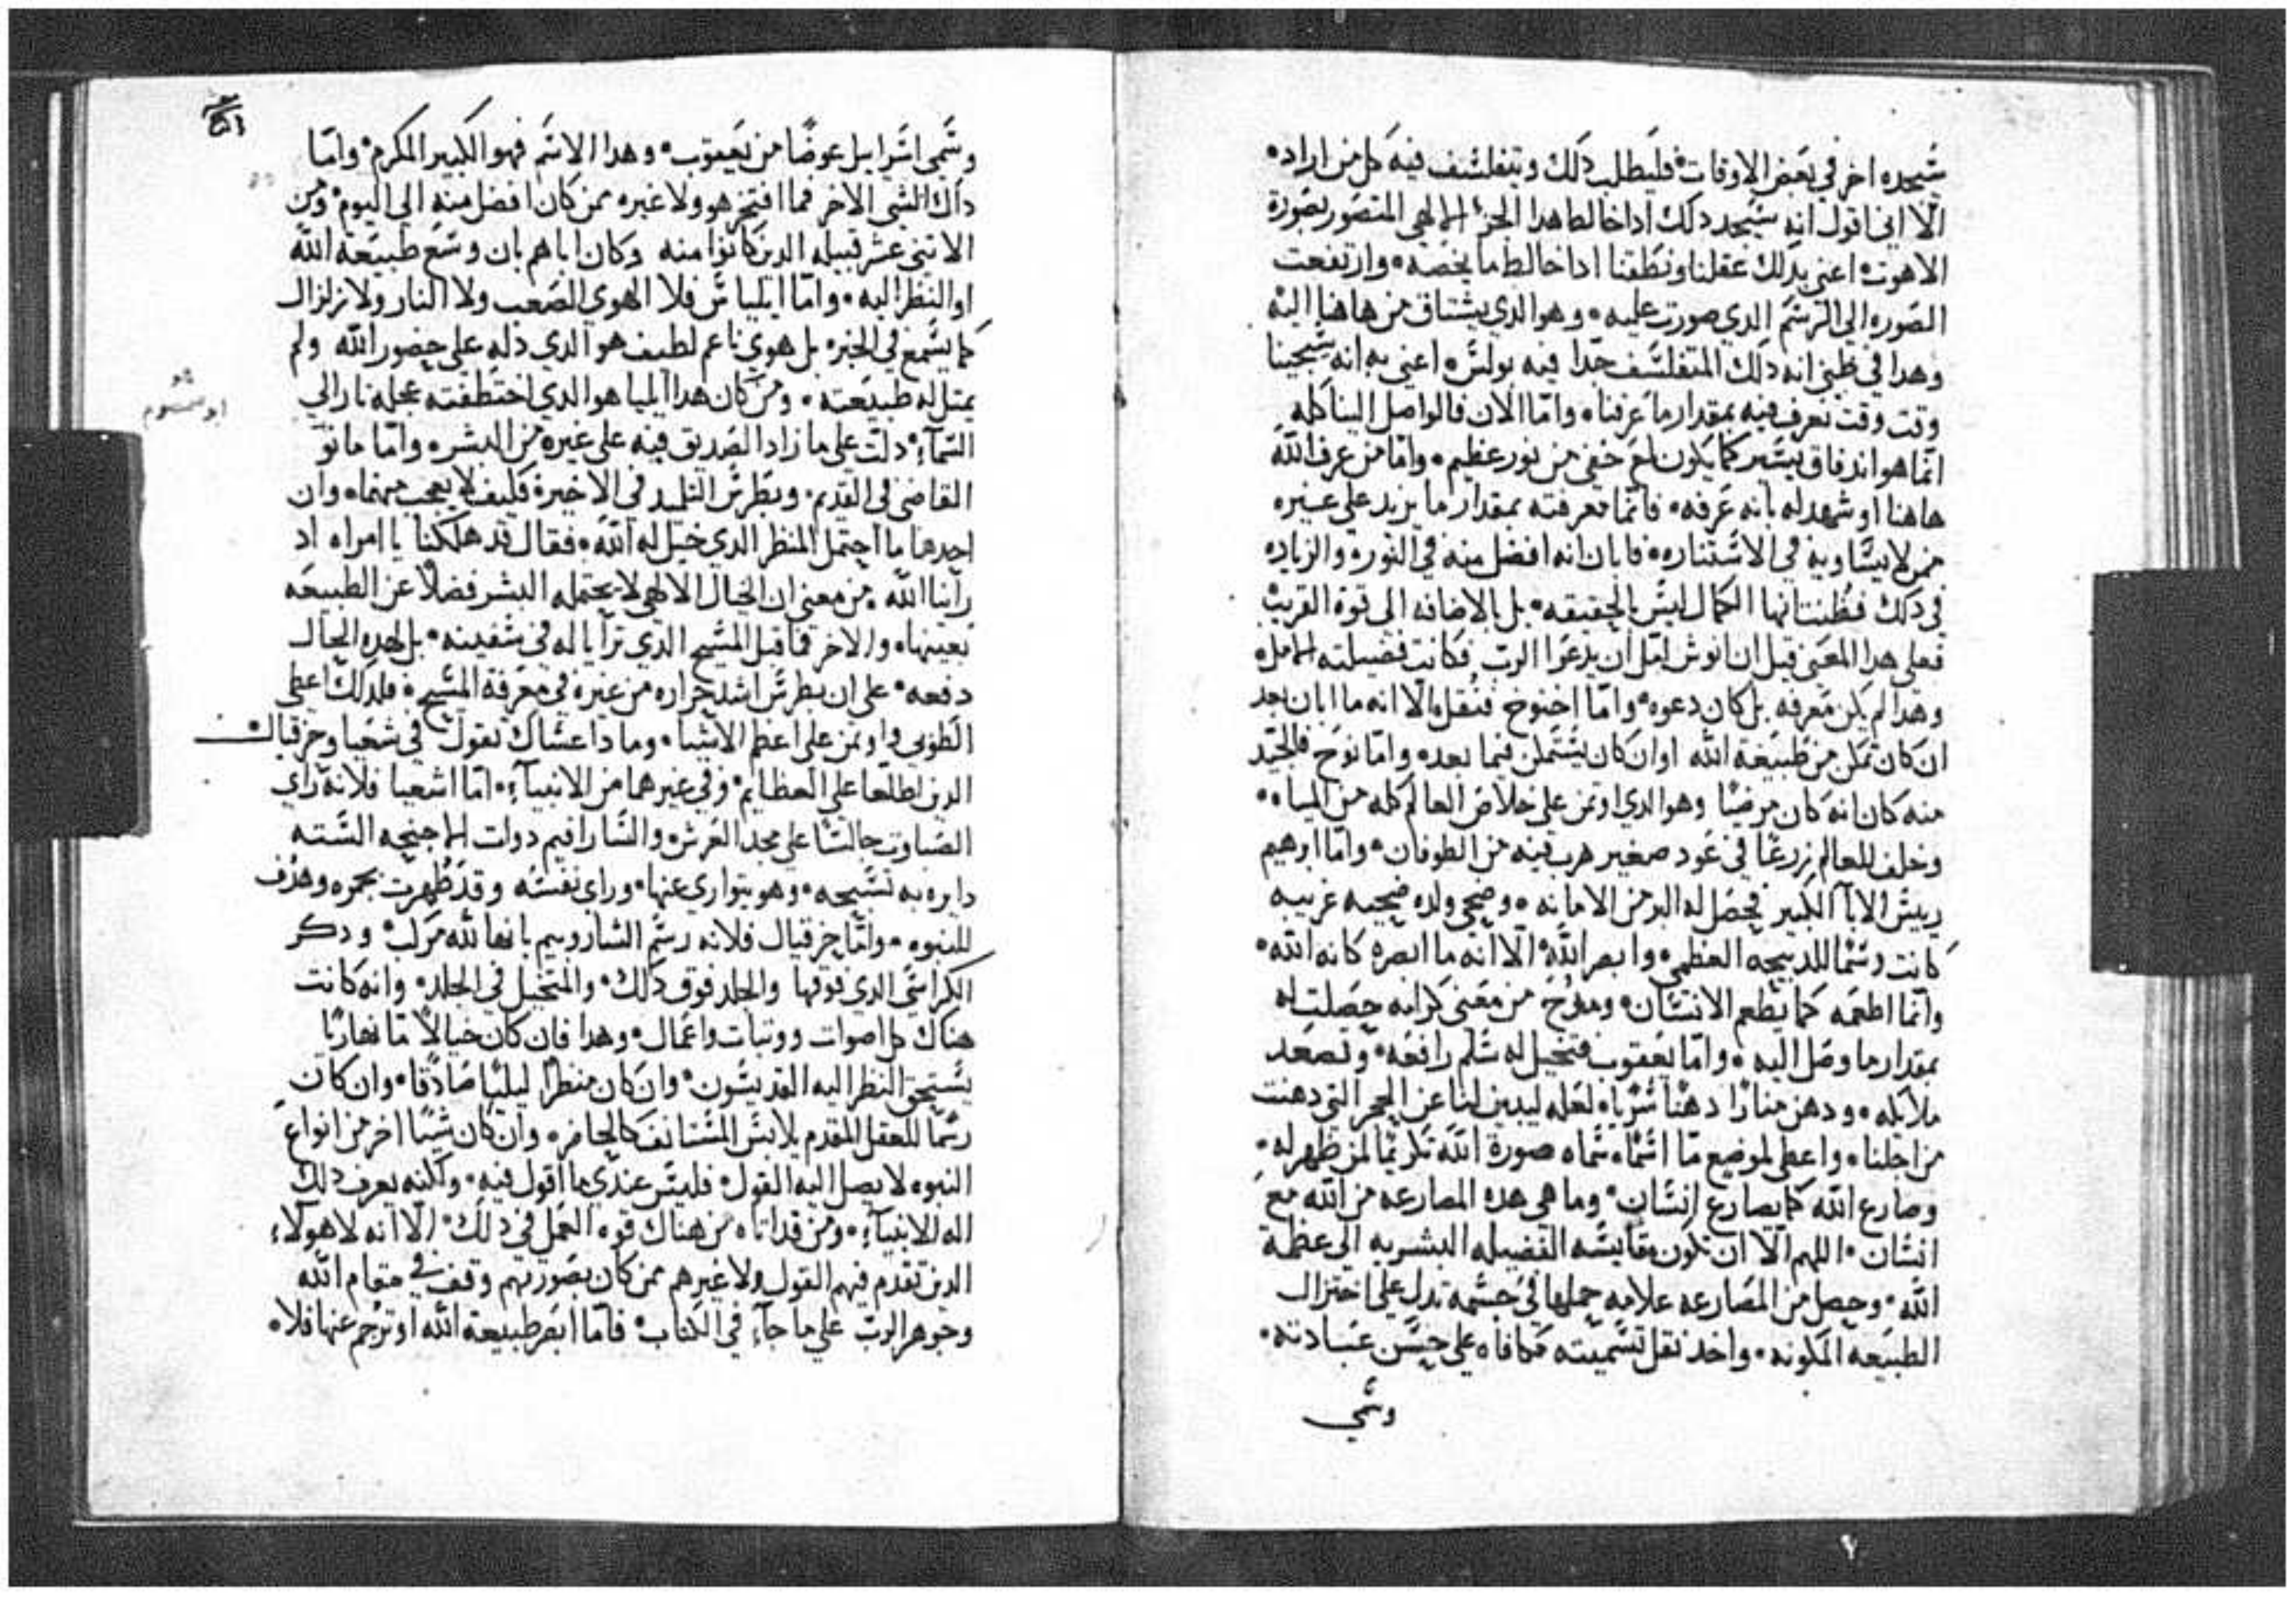 سيجده اخر في بعض الاوقات فليطلب دلك ويتفلسف فيه كل من اراد
الا اني اقول انه سيجد دلك ادا خالط هدا الجزء الالهي المتصور بصورة
الاهوت اعني بدلك عقلنا ونطقنا ادا خالط ما يخصه وارتفعت
الصوره الي الرسم الدي صورت عليه وهو الدي يشتاق من هاهنا اليه
وهدا في ظني انه دلك المتفلسف جدا فيه بولس اعني به انه سيجينا
وقت وقت نعرف فيه بمقدار ما عرفنا واما الان فالواصل الينا كله
انما هو اندفاق يسير كما يكون لمع خفي من نور عظيم واما من عرف الله
هاهنا او شهد له بانه عرفه فانما معرفته بمقدار ما يزيد علي غيره
ممن لا يساويه في الاستناره فابان انه افضل منه في النور والزياده
في دلك فظنتانها الكمال ليس بالحقيقه بل بالاضافه الي قوة القريب
فعلي هدا المعني قيل ان انوش امل ان يدعوا الرب فكانت فضيلته الامل
وهدا لم يكن معرفه بل كان دعوه واما اخنوخ فنقل الا انه ما ابان بعد
ان كان تمكن من طبيعة الله او ان كان يتمكن فيما بعده واما نوح فالجيد
منه كان انه كان مرضيا وهو الدي اوتمن علي خلاص العالم كله من المياه
وخلف للعالم زرعا في عود صغير هرب فيه من الطوفان واما ابرهيم
ريس الابا الكبير فحصل له البر من الامانه وضحي ولده ضحيه غريبه
كانت رسما للدبيحه العظمي وابصر الله الا انه ما ابصره كانه الله
وانما اطعمه كما يطعم الانسان ومدح من معني كرامه حصلت له
بمقدار ما وصل اليه واما يعقوب فتخيل له سلم رافعه وتصعد
ملايكه ودهن منارا دهنا سريا لعله ليبين لنا عن الحجر التي دهنت
من اجلنا واعطي لموضع ما اسما سماه صورة الله تكريما لمن ظهر له
وصارع الله كما يصارع انسان وما هي هده المصارعه من الله مع
انسان اللهم الا ان تكون مقايسه الفضيله البشريه الي عظمة
الله وحصل من المصارعه علامه حملها في جسمه تدل علي اختزال
الطبيعه المكونه واخد نقل تسميته مكافاه علي حسن عبادته
وسمي
وسمي اسراييل عوضا من يعقوب وهدا الاسم فهو الكبير المكرم واما
داك الشي الاخر فما افتخر هو ولا غيره ممن كان افضل منه الي اليوم ومن
الاتني عشر قبيله الدين كانوا منه وكان اباهم بان وسع طبيعة الله
او النظر اليه واما ايلياس فلا الهوي الصعب ولا النار ولا زلزال
كما يسمع في الخبر بل هوي ناعم لطيف هو الدي دله علي حضور الله ولم
يمتل له طبيعته ومن كان هدا ايليا هو الدي اختطفته عجله نار الي
السماء دلت علي ما زاد الصديق فيه علي غيره من البشر واما مانو
القاضي في القديم وبطرس التلميد في الاخير فكيف لا يعجب منهما وان
احدها ما احتمل المنظر الدي خيل له الله فقال قد هلكنا يا امراه اد
راينا الله من معني ان الخيال الالهي لا يحتمله البشر فضلا عن الطبيعه
بعينها والاخر فما قبل المسيح الدي ترايا له في سفينه بل لهده الحال
دفعه علي ان بطرس اشد حراره من غيره في معرفة المسيح فلدلك اعطي
الطوبي واوتمن علي اعظم الاشيا وما دا عساك تقول في شعيا وحزقيال
الدين اطلعا علي العظايم وفي غيرهما من الانبياء اما اشعيا فلانه راي
الصباوت جالسا علي مجد العرش والسارافيم دوات الاجنحه السته
دايره به تسبحه وهو يتواري عنها وراي نفسه وقد ظهرت بجمره وهدف
للنبوه واما حزقيال فلانه رسم الشاروبيم بانها لله مركب ودكر
الكراسي الدي فوقها والجلد فوق دلك والمتخيل في الجلد وانه كانت
هناك كل اصوات ووتبات واعمال وهدا فان كان خيالا ما نهاريا
يستحق النظر اليه القديسون وان كان منظرا ليليا صادقا وان كان
رسما للعقل المقدم يلابس المستانف كالحاضر وان كان شيا اخر من انواع
النبوه لا يصل اليه القول فليس عندي ما اقول فيه ولكنه يعرف دلك
اله الانبياء ومن قد اتاه من هناك قوه العمل في دلك الا انه لا هولاء
الدين تقدم فيهم القول ولا غيرهم ممن كان بصورتهم وقف في مقام الله
وجوهر الرب علي ما جاء في الكتاب فاما ابصر طبيعة الله او ترجم عنها فلا